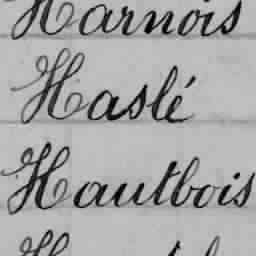 Harnois
Haslé
Hautbois